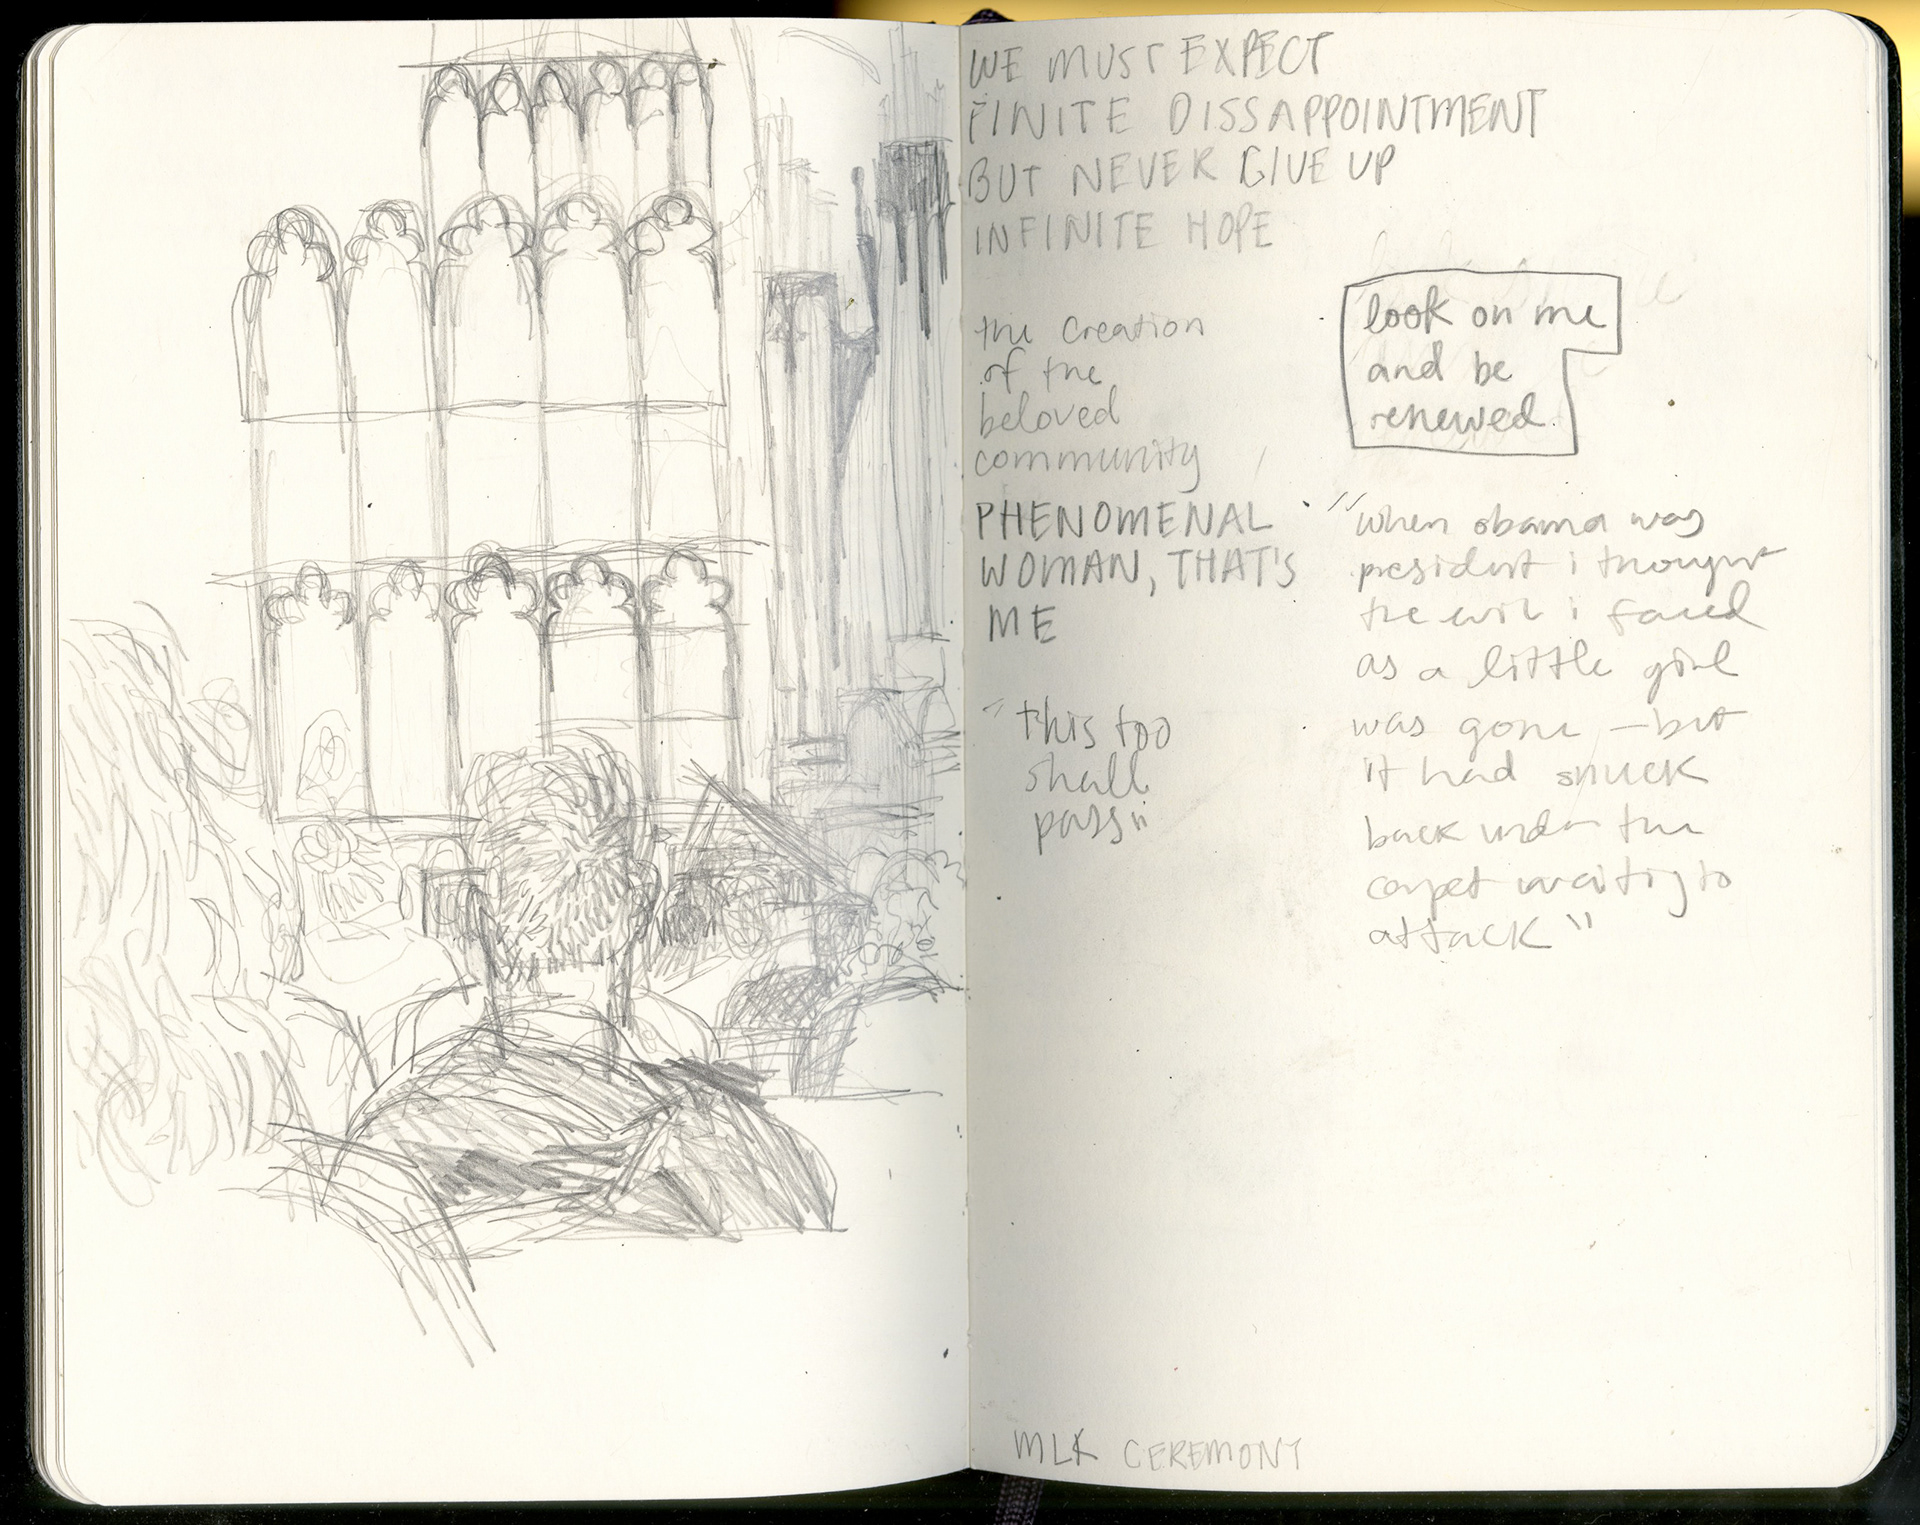 WE MUST EXPECT
FINITE DISSAPPOINTMENT
BUT NEVER GIVE UP
INFINITE HOPE
the creation
of the
beloved
community
PHENOMENAL
WOMAN, THAT'S
ME
"this too
shall
pass"
look on me
and be
renewed.
"when obama was
president i thought
the evil i faced
as a little girl
was gone – but
it had snuck
back under the
carpet waiting to
attack"
MLK CEREMONY